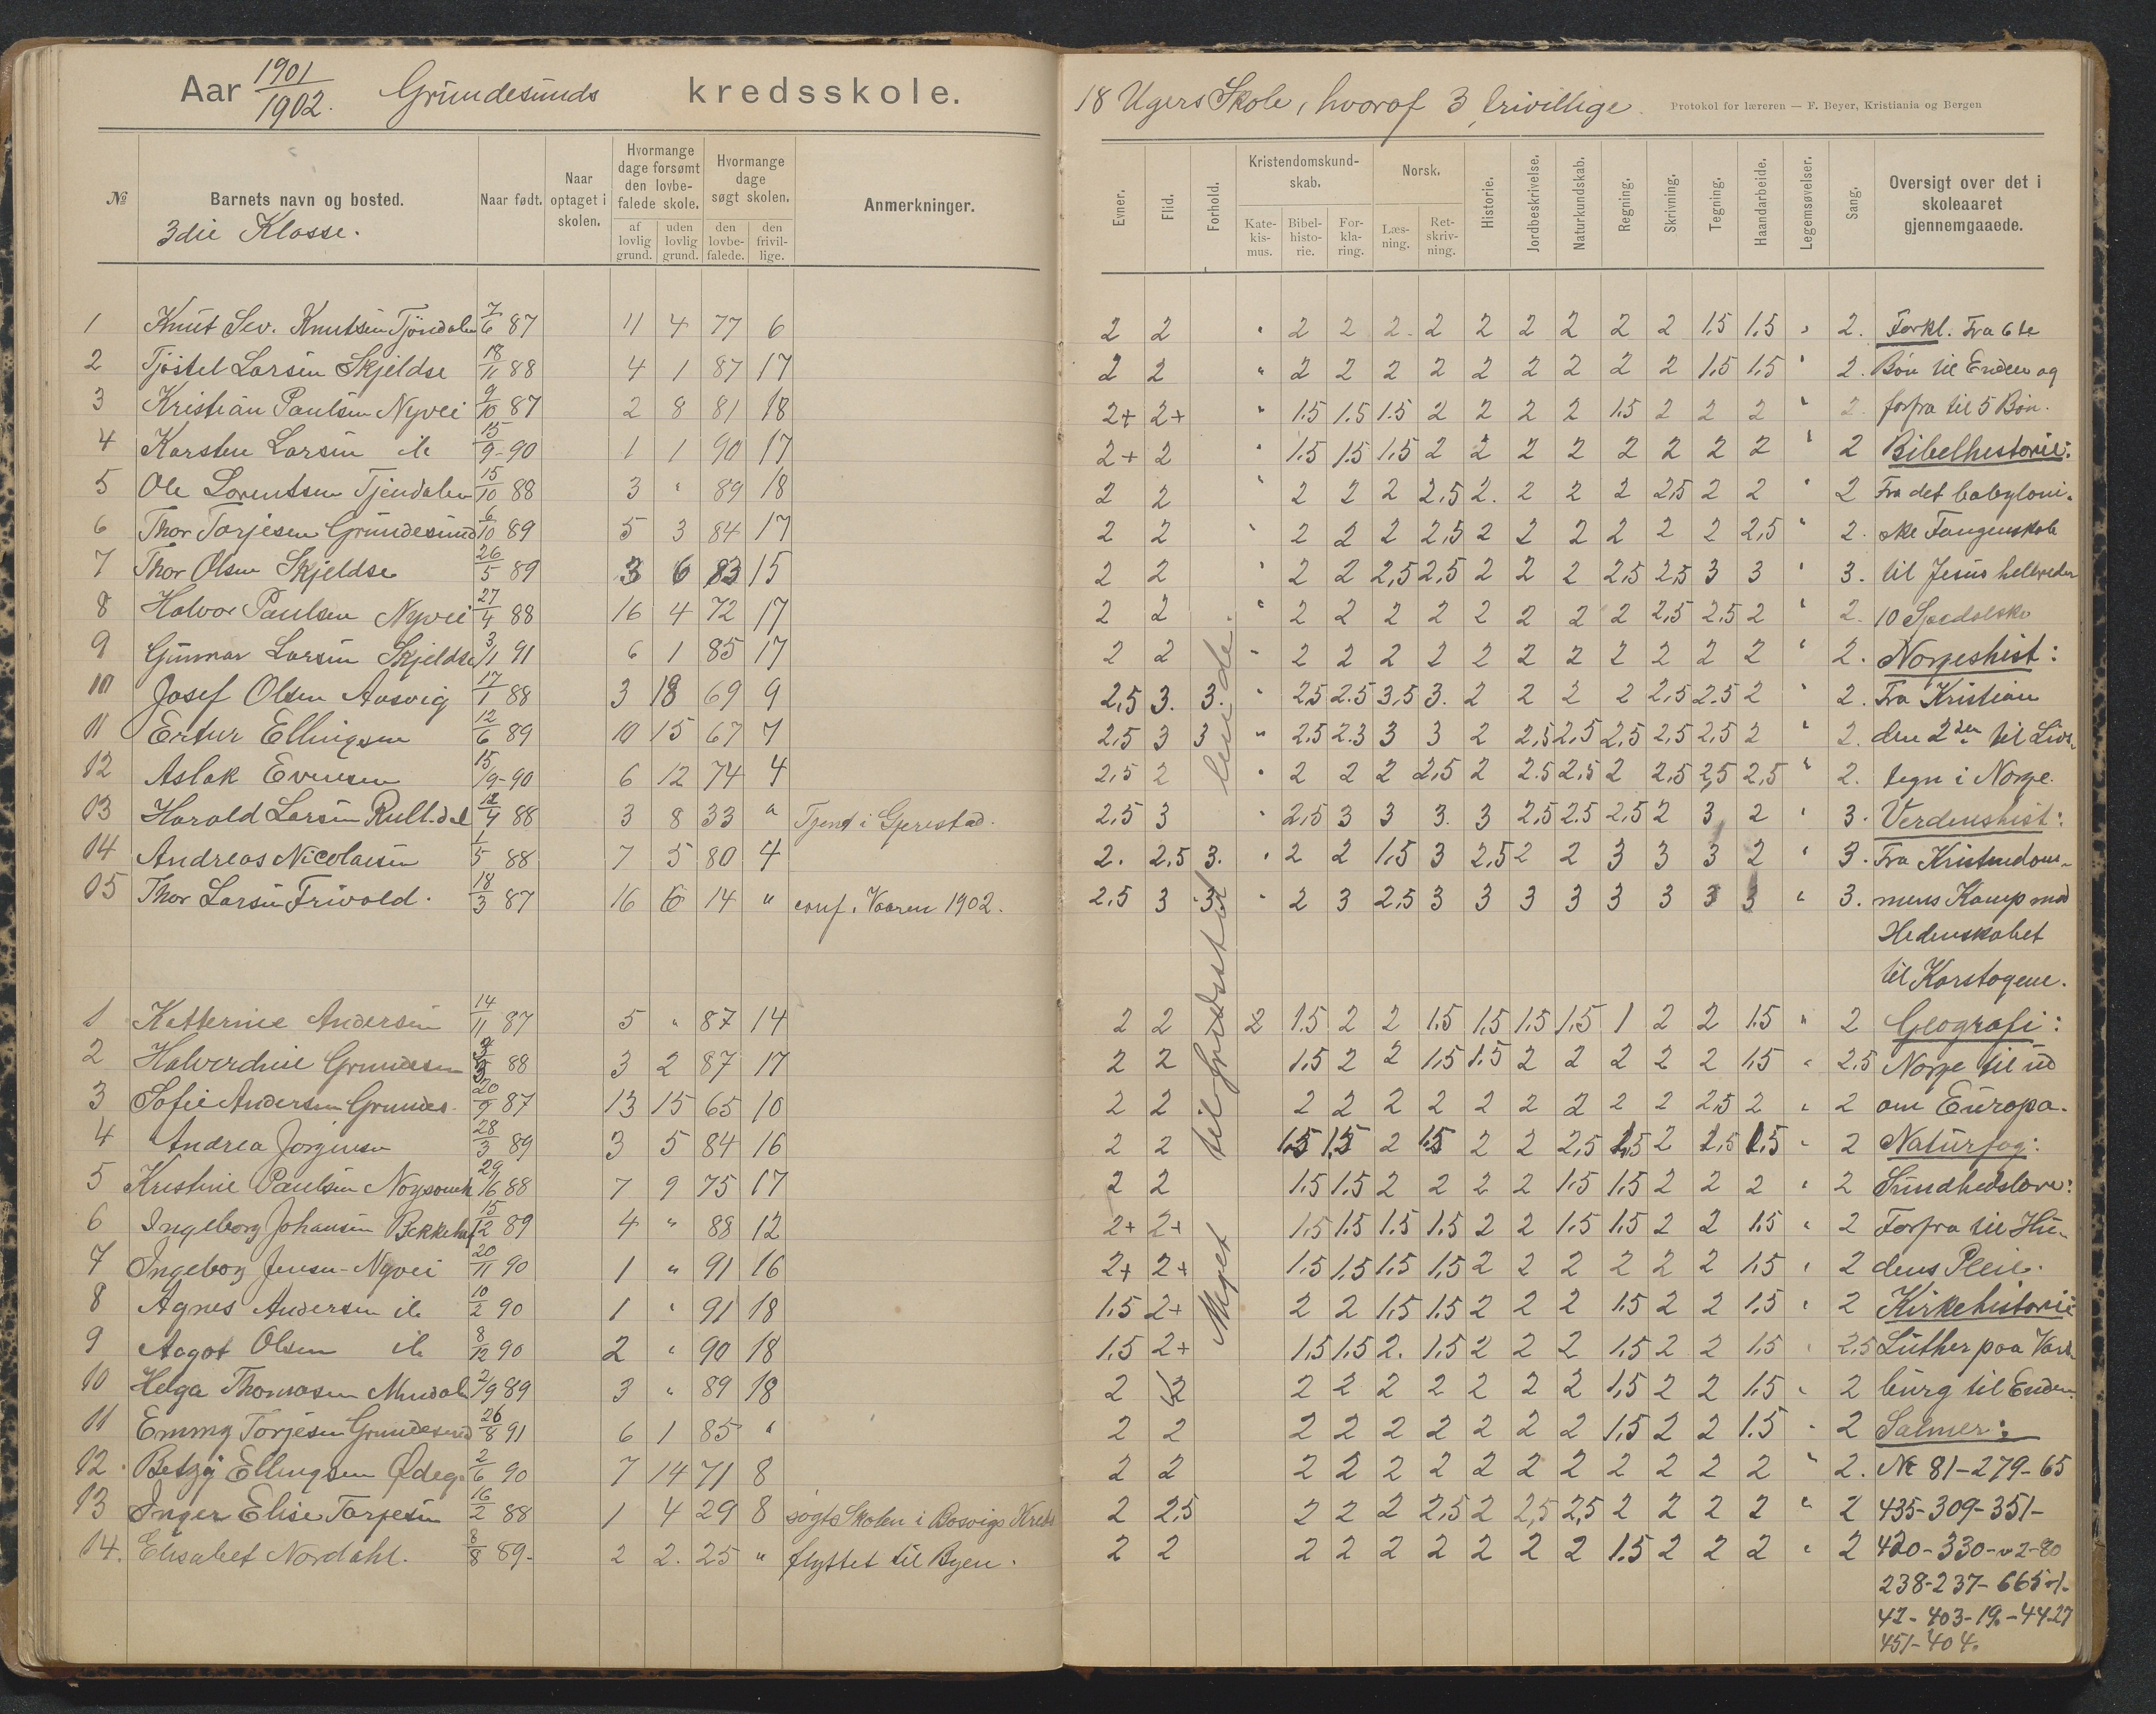 Aar 1901/1902. Grundesunds kredsskole.
18 Ugers Skole, hvoraf 3 frivillige. Protokol for læreren — F. Beyer, Kristiania og Bergen
№ Barnets navn og bosted. Naar født. Naar optaget i skolen. Hvormange dage forsømt den lovbefalede skole. af lovlig grund. uden lovlig grund. Hvormange dage søgt skolen. den lovbefalede. den frivillige. Anmerkninger.
Evner. Flid. Forhold. Kristendomskundskab. Katekismus. Bibelhistorie. Forklaring. Norsk. Læsning. Retskrivning. Historie. Jordbeskrivelse. Naturkundskab. Regning. Skrivning. Tegning. Haandarbeide. Legemsøvelser. Sang. Oversigt over det i skoleaaret gjennemgaaede.
3die Klasse.
1 Knut Sev. Knutsen Tjöndalen 7/6 87 11 4 77 6 2 2 " 2 2 2 2 2 2 2 2 2 1.5 1.5 " 2. Forkl. Fra 6te
2 Tjöstel Larsen Skjeldsø 18/11 88 4 1 87 17 2 2 " 2 2 2 2 2 2 2 2 2 1.5 1.5 " 2. Bøn til Enden og
3 Kristian Paulsen Nyvei 9/10 87 2 8 81 18 2+ 2+ " 1.5 1.5 1.5 2 2 2 2 1.5 2 2 2 " 2. forfra til 5 Bøn.
4 Karsten Larsen do 15/9-90 1 1 90 17 2+ 2 " 1.5 1.5 1.5 2 2 2 2 2 2 2 2 " 2 Bibelhistorie:
5 Ole Lorentsen Tjendalen 15/10 88 3 " 89 18 2 2 " 2 2 2 2,5 2. 2 2 2 2,5 2 2 " 2 Fra det babyloni-
6 Thor Torjesen Grundesund 6/10 89 5 3 84 17 2 2 " 2 2 2 2,5 2 2 2 2 2 2 2,5 " 2. ske Fangenskab
7 Thor Olsen Skjeldsø 26/5 89 3 6 83 15 2 2 " 2 2 2,5 2,5 2 2 2 2,5 2,5 3 3 " 3. til Jesus helbreder
8 Halvor Paulsen Nyvei 27/4 88 16 4 72 17 2 2 " 2 2 2 2 2 2 2 2 2,5 2.5 2 " 2. 10 Spedalske
9 Gunnar Larsen Skjeldsø 3/1 91 6 1 85 17 2 2 " 2 2 2 2 2 2 2 2 2 2 2 " 2. Norgeshist:
10 Josef Olsen Aasvig 17/1 88 3 18 69 9 2,5 3. 3. " 2,5 2.5 3,5 3. 2 2 2 2 2,5 2.5 2 " 2. Fra Kristian
11 Ertur Ellingsen 12/6 89 10 15 67 7 2,5 3 3 " 2.5 2.3 3 3 2 2,5 2,5 2,5 2,5 2,5 2 " 2. den 2den til Livs-
12 Aslak Evensen 15/9-90 6 12 74 4 2,5 2 " 2 2 2 2,5 2 2.5 2,5 2 2,5 2,5 2,5 " 2. tegn i Norge.
13 Harald Larsen 12/4 88 3 8 33 " Tjent i Gjerestad. 2,5 3 " 2,5 3 3 3. 3 2,5 2.5 2,5 2 3 2 " 3. Verdenshist:
14 Andreas Nicolaisen 1/5 88 7 5 80 4 2. 2,5 3. " 2 2 1.5 3 2,5 2 2 3 3 3 2 " 3. Fra Kristendom-
15 Thor Larsen Frivold. 18/3 87 16 6 14 " conf. Vaaren 1902. 2,5 3 3 " 2 3 2,5 3 3 3 3 3 3 3 3 " 3. mens Kamp mod
Hedenskabet
til Korstogene.
1 Katterine Andersen 14/11 87 5 " 87 14 2 2 2 1.5 2 2 1.5 1,5 1.5 1,5 1 2 2 1.5 " 2 Geografi:
2 Halverdine 88 3 2 87 17 2 2 1.5 2 2 1.5 1.5 2 2 2 2 2 1.5 " 2.5 Norge til ud
3 Sofie Andersen Grundes. 20/9 87 13 15 65 10 2 2 2 2 2 2 2 2 2 2 2 2,5 2 " 2 om Europa.
4 Andrea Jörgensen 28/3 89 3 5 84 16 2 2 1.5 1.5 2 1.5 2 2 2,5 2 " 2 Naturfag:
5 Kristine Paulsen 88 7 9 75 17 2 2 1.5 1.5 2 2 2 2 1.5 1.5 2 2 2 " 2 Sundhedslære:
6 Ingeborg Johansen 15/12 89 4 " 88 12 2+ 2+ 1.5 1.5 1.5 1.5 2 2 1.5 1.5 2 2 1.5 " 2 Forfra til Hu-
7 Ingeborg Jensen Nyvei 20/11 90 1 " 91 16 2+ 2+ 1.5 1.5 1.5 1.5 2 2 2 2 2 2 1.5 " 2 dens Pleie.
8 Agnes Andersen do 10/2 90 1 " 91 18 1.5 2+ 2 2 1.5 1.5 2 2 2 1.5 2 2 1.5 " 2 Kirkehistorie
9 Aagot Olsen do 8/12 90 2 " 90 18 1.5 2+ 1.5 1.5 2. 1.5 2 2 2 1.5 2 2 1.5 " 2.5 Luther paa Vart-
10 Helga Thomasen 2/9 89 3 " 89 18 2 2 2 2 2 2 2 2 2 1.5 2 2 1.5 " 2 burg til Enden
11 Emmy Torjesen Grundesund 26/8 91 6 1 85 " 2 2 2 2 2 2 2 2 2 1.5 2 2 1.5 " 2 Salmer:
12. Betzy Ellingsen Ødeg. 2/6 90 7 14 71 8 2 2 2 2 2 2 2 2 2 2 2 2 2 " 2. Nr 81-279-65
13 Inger Elise Torjesen 16/2 88 1 4 29 8 søgte Skolen i Bosvigs Kreds 2 2,5 2 2 2 2,5 2 2,5 2,5 2 2 2 2 " 2 435-309-351-
14. Elisabet Nordahl. 8/8 89- 2 2. 25 " flyttet til Byen. 2 2 2 2 2 2 2 2 2 1.5 2 2 2 " 2 420-330-v2-80
238-237-665
403-19-44-27
451-404.
Meget tilfredsstillende.